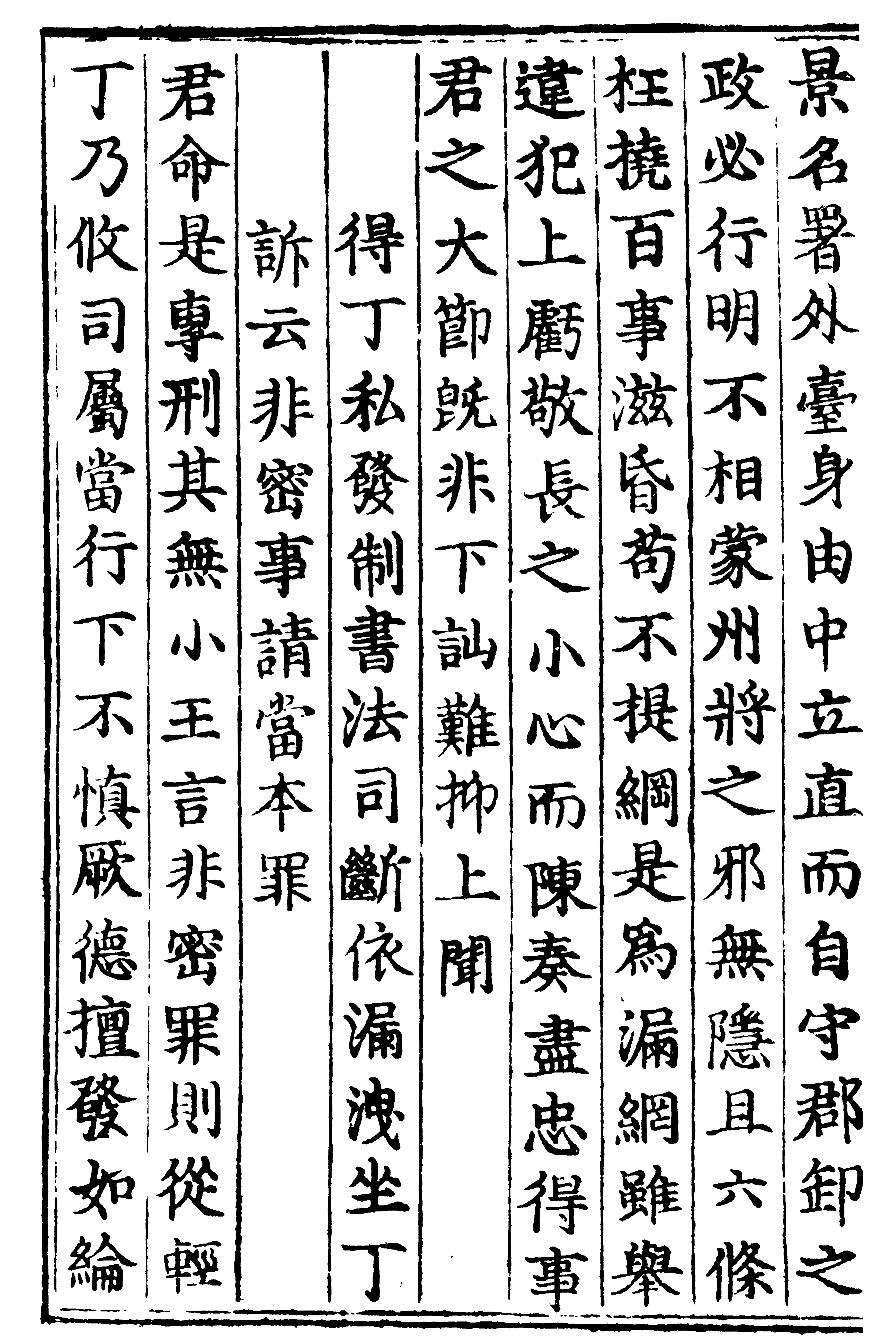 景名署外臺身由中立直而自守郡卸之
政必行明不相蒙州將之邪無隱且六條
枉撓百事滋昏苟不提綱是爲漏網雖舉
違犯上虧敬長之小心而陳奏盡忠得事
君之大節旣非下訕難抑上聞
得丁私發制書法司斷依漏洩坐丁
訴云非密事請當本罪
君命是專刑其無小王言非密罪則從輕
丁乃攸司屬當行下不慎厥德擅發如綸